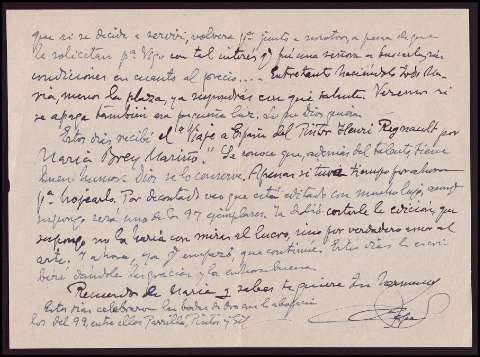 que si se decide a servir, volvera pª junto a nosotros, a pesar de que
la solicitan pª Vigo con tal interés q. fué una señora a buscarla, sin
condiciones en cuanto al precio... Entretanto haciéndolo todo Ma-
ría, menos la plaza, ya supondrás con qué talento. Veremos si
se apaga también esa pequeña luz. Lo que Dios quiera.
Estos días recibí el "Viaje a España del Pintor Henri Regnault por
María Brey Mariño." Se conoce que, además del talento, tiene
buen humor. Dios se lo conserve. Apenas si tuve tiempo por ahora
pª hojearlo. Por descontado veo que está editado con mucho lujo, aunq.
supongo será uno de los 97 ejemplares. Ya debió costarle la edición, que
supongo no la haría con miras al lucro, sino por verdadero amor al
arte. Y ahora, ya q. empezó, que continúe. Estos días le escri
biré dándole las gracias y la enhorabuena.
Recuerdos de María y sabes te quiere tu hermano
Estos días celebraron las bodas de Oro en la
los del 99, entre ellos Parrilla, Pintos y Gil